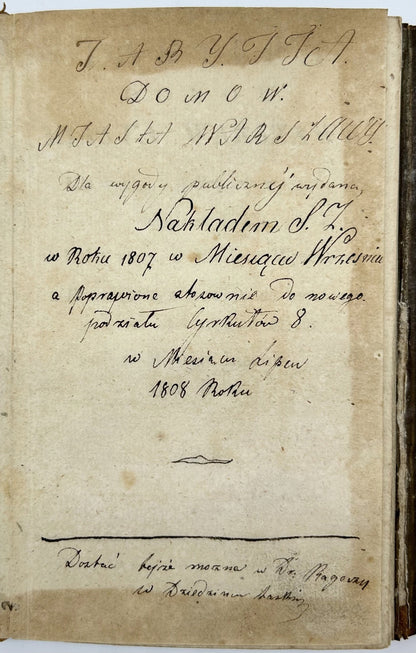 T. A R Y. F F A.
D O M O W.
MIASTA WARSZAWY.
Dla wygody publicznéy wydana,
Nakładem S. Z.
w Roku 1807 w Miesiącu Wrześniu
a poprawione stosownie do nowego
podziału Cyrkułów 8.
w Miesiącu Lipcu
1808 Roku
Dostać teyże można w Dr: Ragoczy
w Dziedzińcu